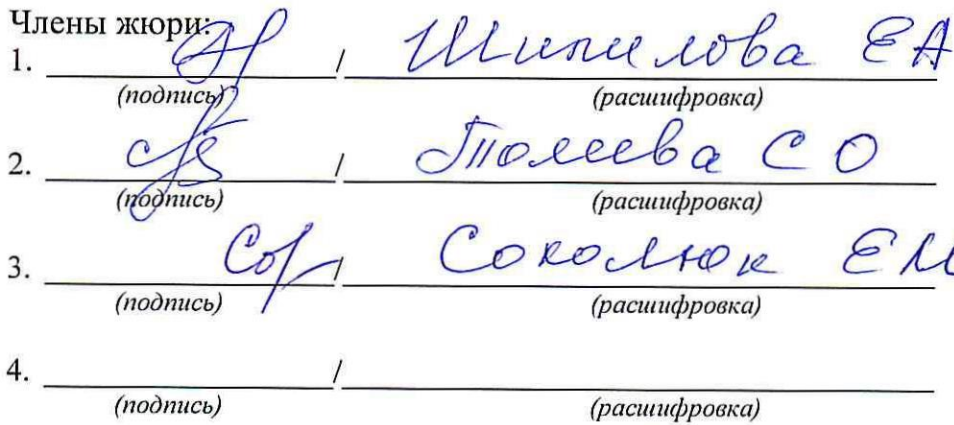 Члены жюри:
1. / Шипилова ЕА
(подпись) (расшифровка)
2. / Толеева С О
(подпись) (расшифровка)
3. / Соколюк ЕМ
(подпись) (расшифровка)
4. /
(подпись) (расшифровка)